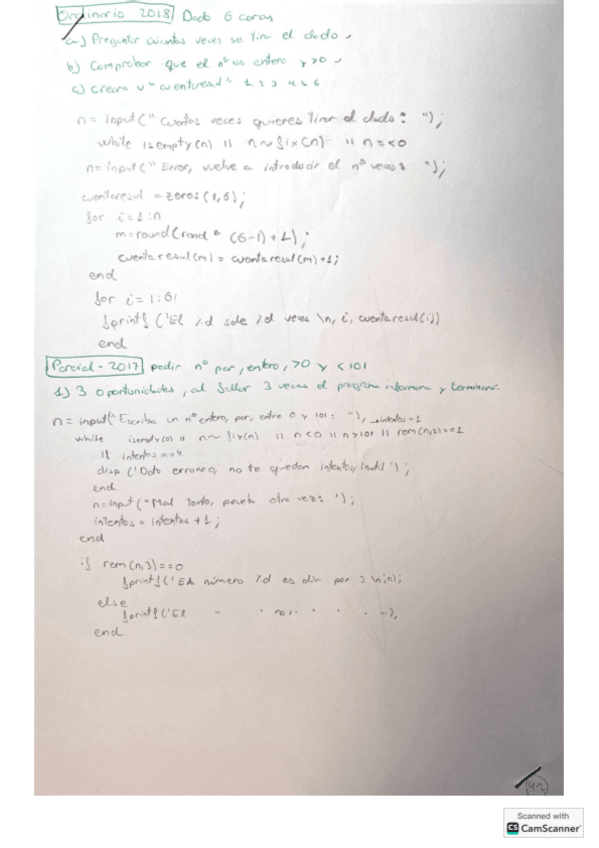 Ordinario 2018 Dado 6 caras
a) Preguntar cuantas veces se tira el dado
b) Comprobar que el nº es entero y >0
c) Creare v "cuentaresul" 1 2 3 4 5 6
n = input(" Cuantas veces quieres tirar el dado: ");
while isempty(n) || n ~ fix(n) || n =<0
n= input (" Error, vuelve a introducir el nº veces: ");
cuentaresul = zeros (1,6);
for i = 1:n
m=round(rand * (6-1)+1);
cuentaresul(m) = cuentaresul(m)+1;
end
for i = 1:6
fprintf ('El %d sale %d veces \n, i, cuentaresul(i))
end
Parcial - 2017 pedir nº par, entero, >0 y <101
1) 3 oportunidades, al fallar 3 veces el programa informara y terminara.
n = input("Escriba un nº entero, par, entre 0 y 101: "); intentos=1
while isempty(n) || n ~ fix(n) || n<0 || n>101 || rem(n,2)==1
if intentos ==4
disp ('Dato erroneo, no te quedan intentos, inutil');
end
n=input ("Mal tonto, prueba otra vez: ');
intentos = intentos +1;
end
if rem(n,3)==0
fprintf('El número %d es div por 3 \n,n);
else
fprintf('El no
end
(42)
Scanned with
CS CamScanner